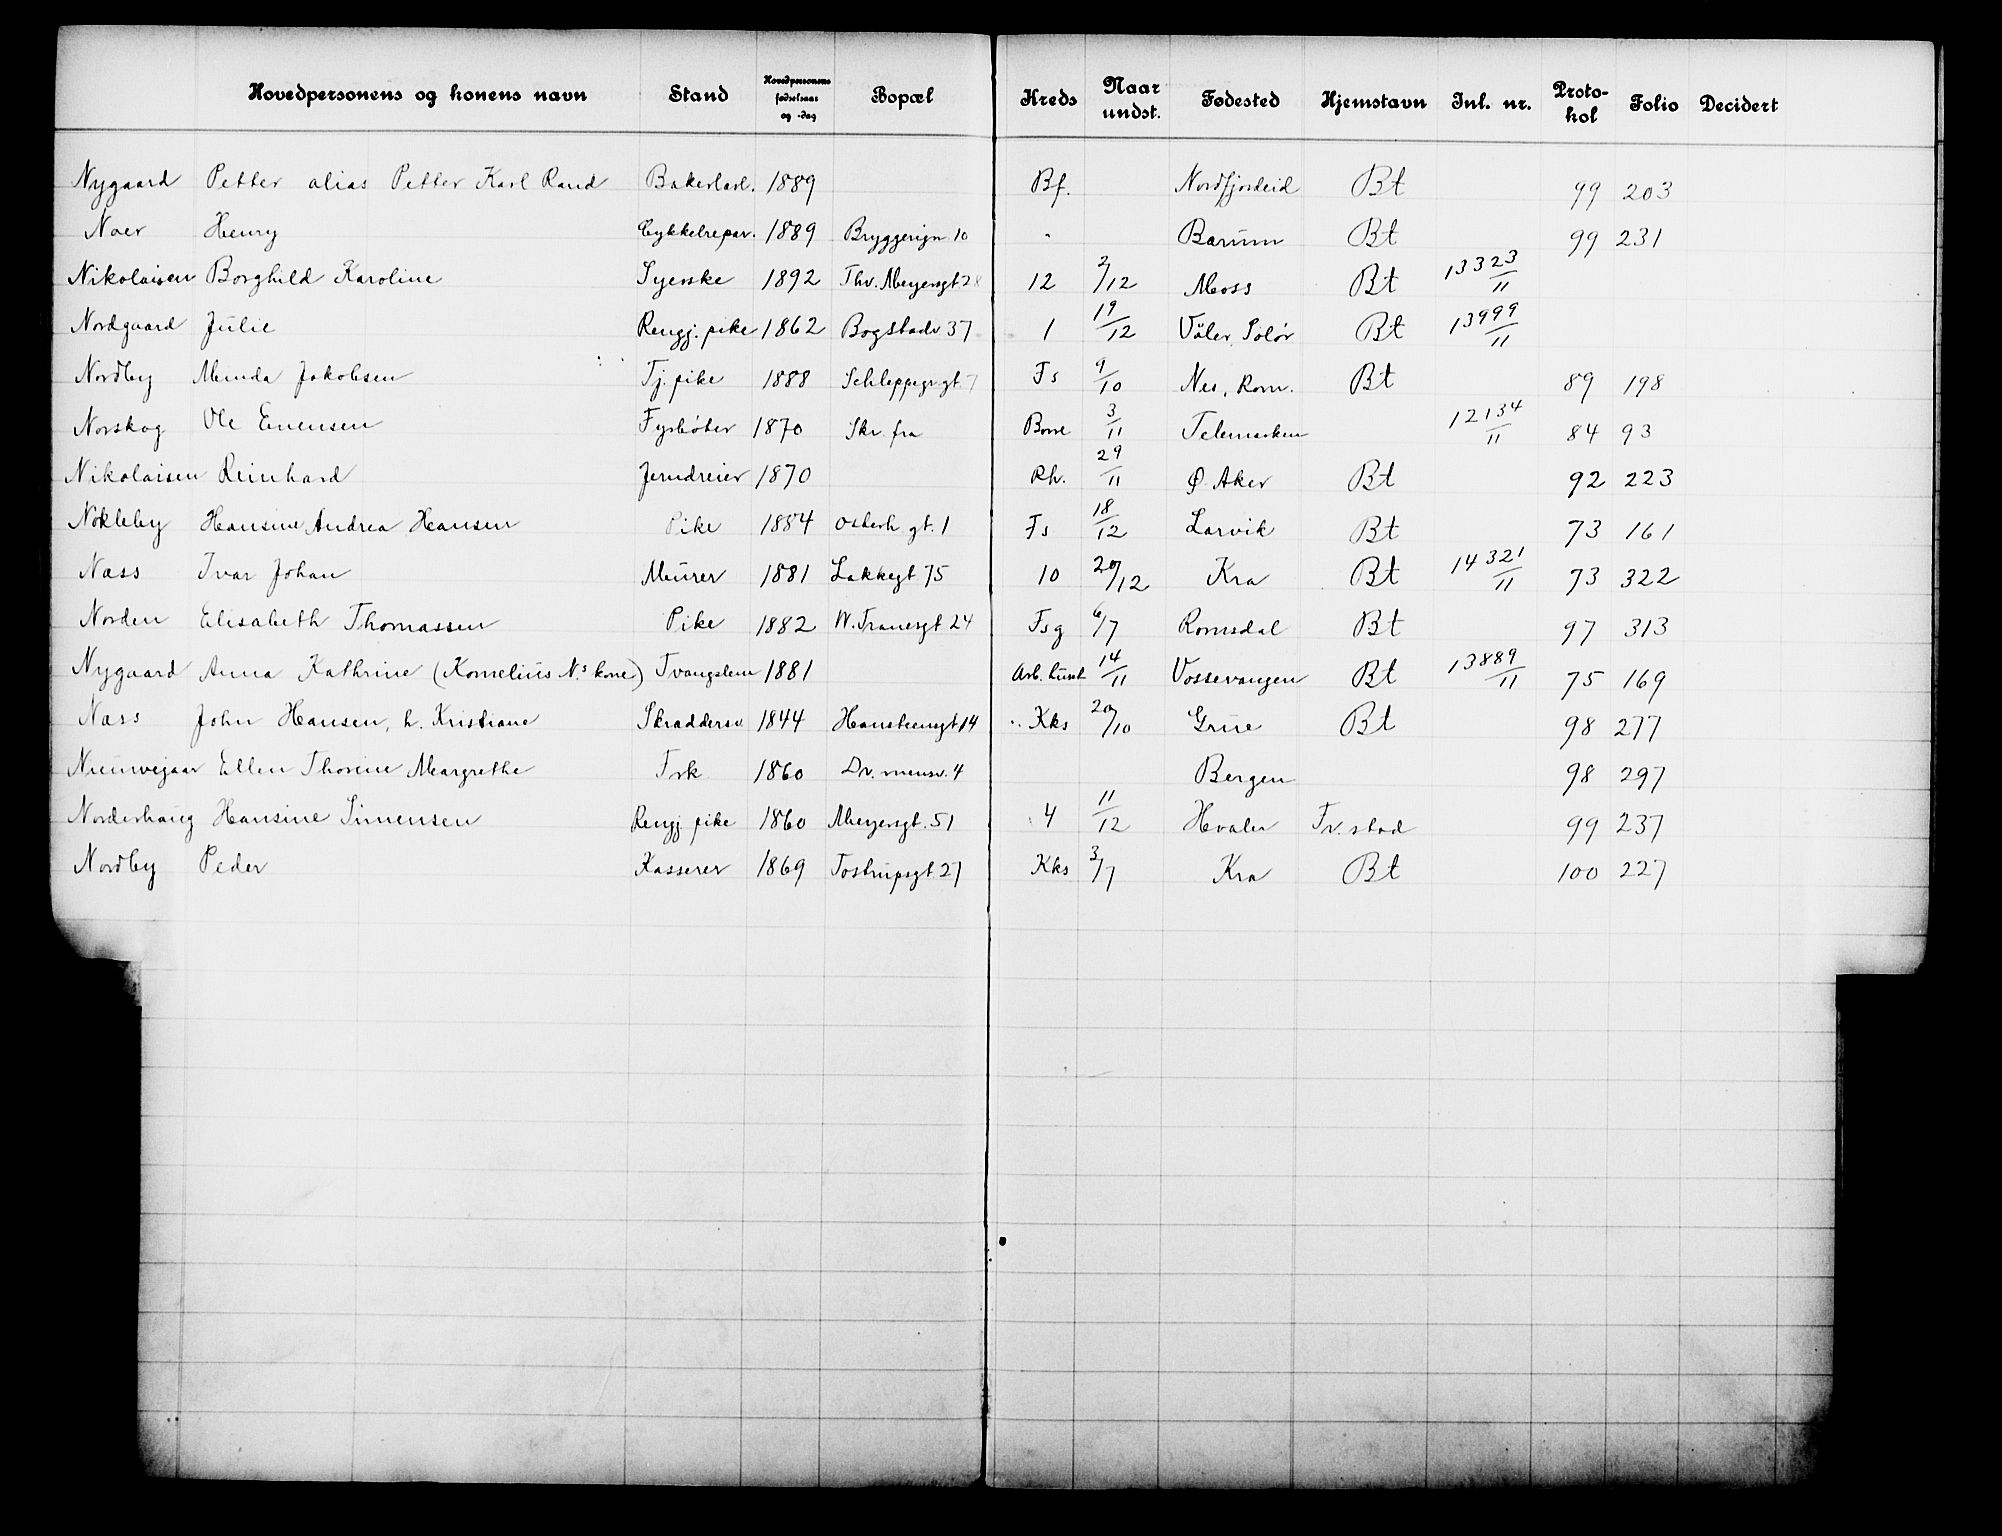 Hovedpersonens og konens navn Stand Hovedpersonens fødselsaar og -dag Bopæl Kreds Naar undst. Fødested Hjemstavn Inl. nr. Protokol Folio Decidert
Nygaard Petter alias Petter Karl Rand Bakerlærl. 1889 Bf. Nordfjordeid Bt 99 203
Noer Henry Cykkelrepar. 1889 Bryggerign 10 " Bærum Bt 99 231
Nikolaisen Borghild Karoline Syerske 1892 Thv. Meyersgt 28 12 2/12 Moss Bt 13323/11
Nordgaard Julie Rengj. pike 1862 Bogstadv 37 1 19/12 Våler, Solør Bt 13999/11
Nordby Minda Jakobsen Tj. pike 1888 Schleppegr.gt 7 Fs 9/10 Nes, Rom. Bt 89 198
Norskog Ole Evensen Fyrbøter 1870 Skr. fra Borre 3/11 Telemarken 12134/11 84 93
Nikolaisen Reinhard Jerndreier 1870 Rh. 29/11 Ø. Aker Bt 92 223
Nøkleby Hansine Andrea Hansen Pike 1884 Osterh gt. 1 Fs 18/12 Larvik Bt 73 161
Næss Ivar Johan Murer 1881 Lakkegt 75 10 20/12 Kra Bt 14321/11 73 322
Norden Elisabeth Thomassen Pike 1882 W. Tranesgt 24 Fsg 6/7 Romsdal Bt 97 313
Nygaard Anna Kathrine (Kornelius N.s kone) Tvangslem 1881 Arb. huset 14/11 Vossevangen Bt 13889/11 75 169
Næss John Hansen, h. Kristiane Skraddersv 1844 Hansteensgt 14 Kks 20/10 Grue Bt 98 277
Nieuwejaar Ellen Thorine Margrethe Frk 1860 Dr. mensv. 4 Bergen 98 297
Norderhaug Hansine Simensen Rengj. pike 1860 Meyersgt. 51 4 11/12 Hvaler Fr. stad 99 237
Nordby Peder Kasserer 1869 Tostrupsgt 27 Kks 3/7 Kra Bt 100 227